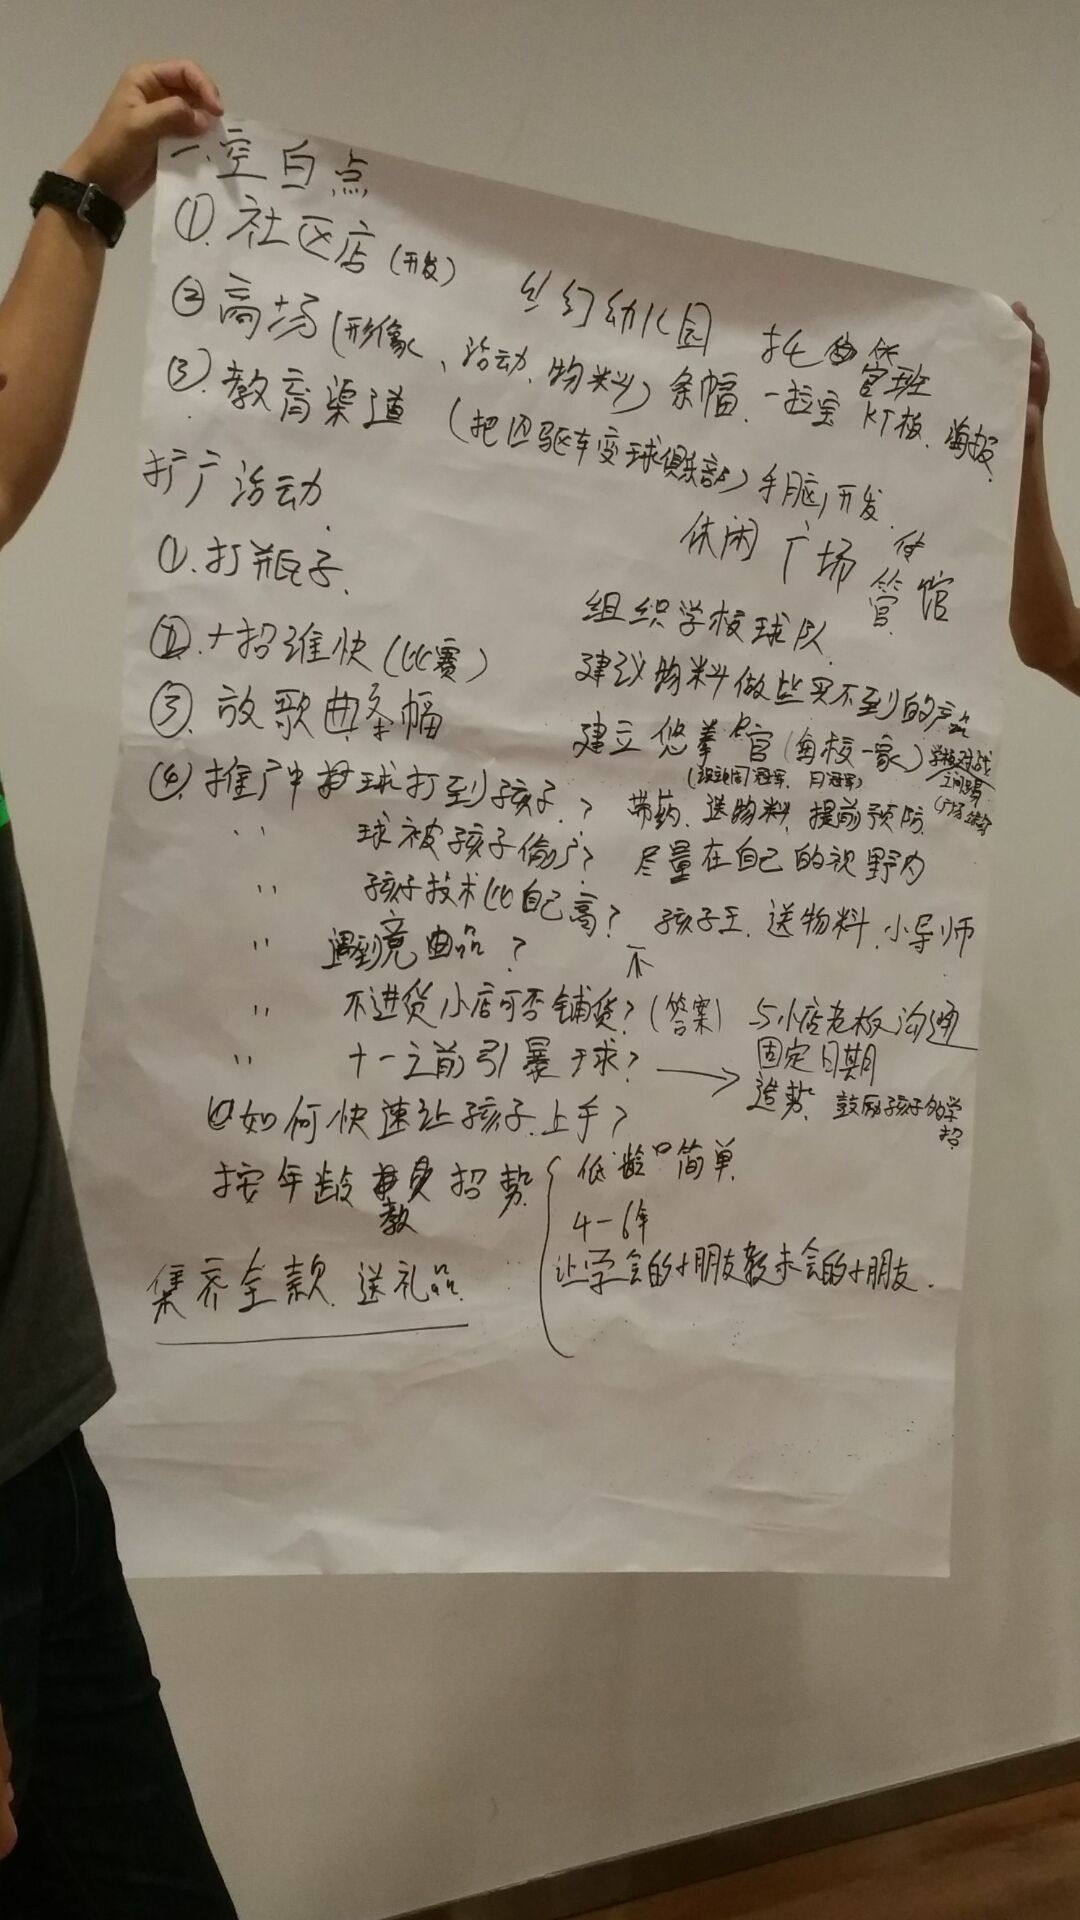 一、空白点
①.社区店(开发)
②商场(形象、活动、物料)条幅、一拉宝 KT板、海报
幼儿园 托管班
③.教育渠道(把四驱车变球俱乐部)手脑开发
广活动
休闲广场 馆
①.打瓶子.
组织学校球队
②.十招谁快(比赛)
建议物料做些买不到的产品
③放歌曲条幅
建立悠拳官(每校一家)
(冠军、月冠军)
④推广中球打到孩子? 带药、送物料、提前预防.
〃 球被孩子偷了? 尽量在自己的视野内
〃 孩子技术比自己高? 孩子王、送物料、小导师
〃 遇到竞品? 不
〃 不进货小店可否铺货?(答案) 与小店老板沟通
〃 十一之前引暴球? → 固定日期
造势、鼓励孩子学招
如何快速让孩子上手?
按年龄教招势 低龄 简单
4-6年
让学会的小朋友教未会的小朋友.
集齐全款 送礼品